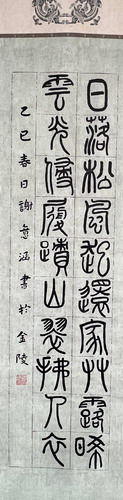 日落松風起還家艸露晞
雲光侵履跡山翠拂人衣
乙巳春日謝意涵書於金陵